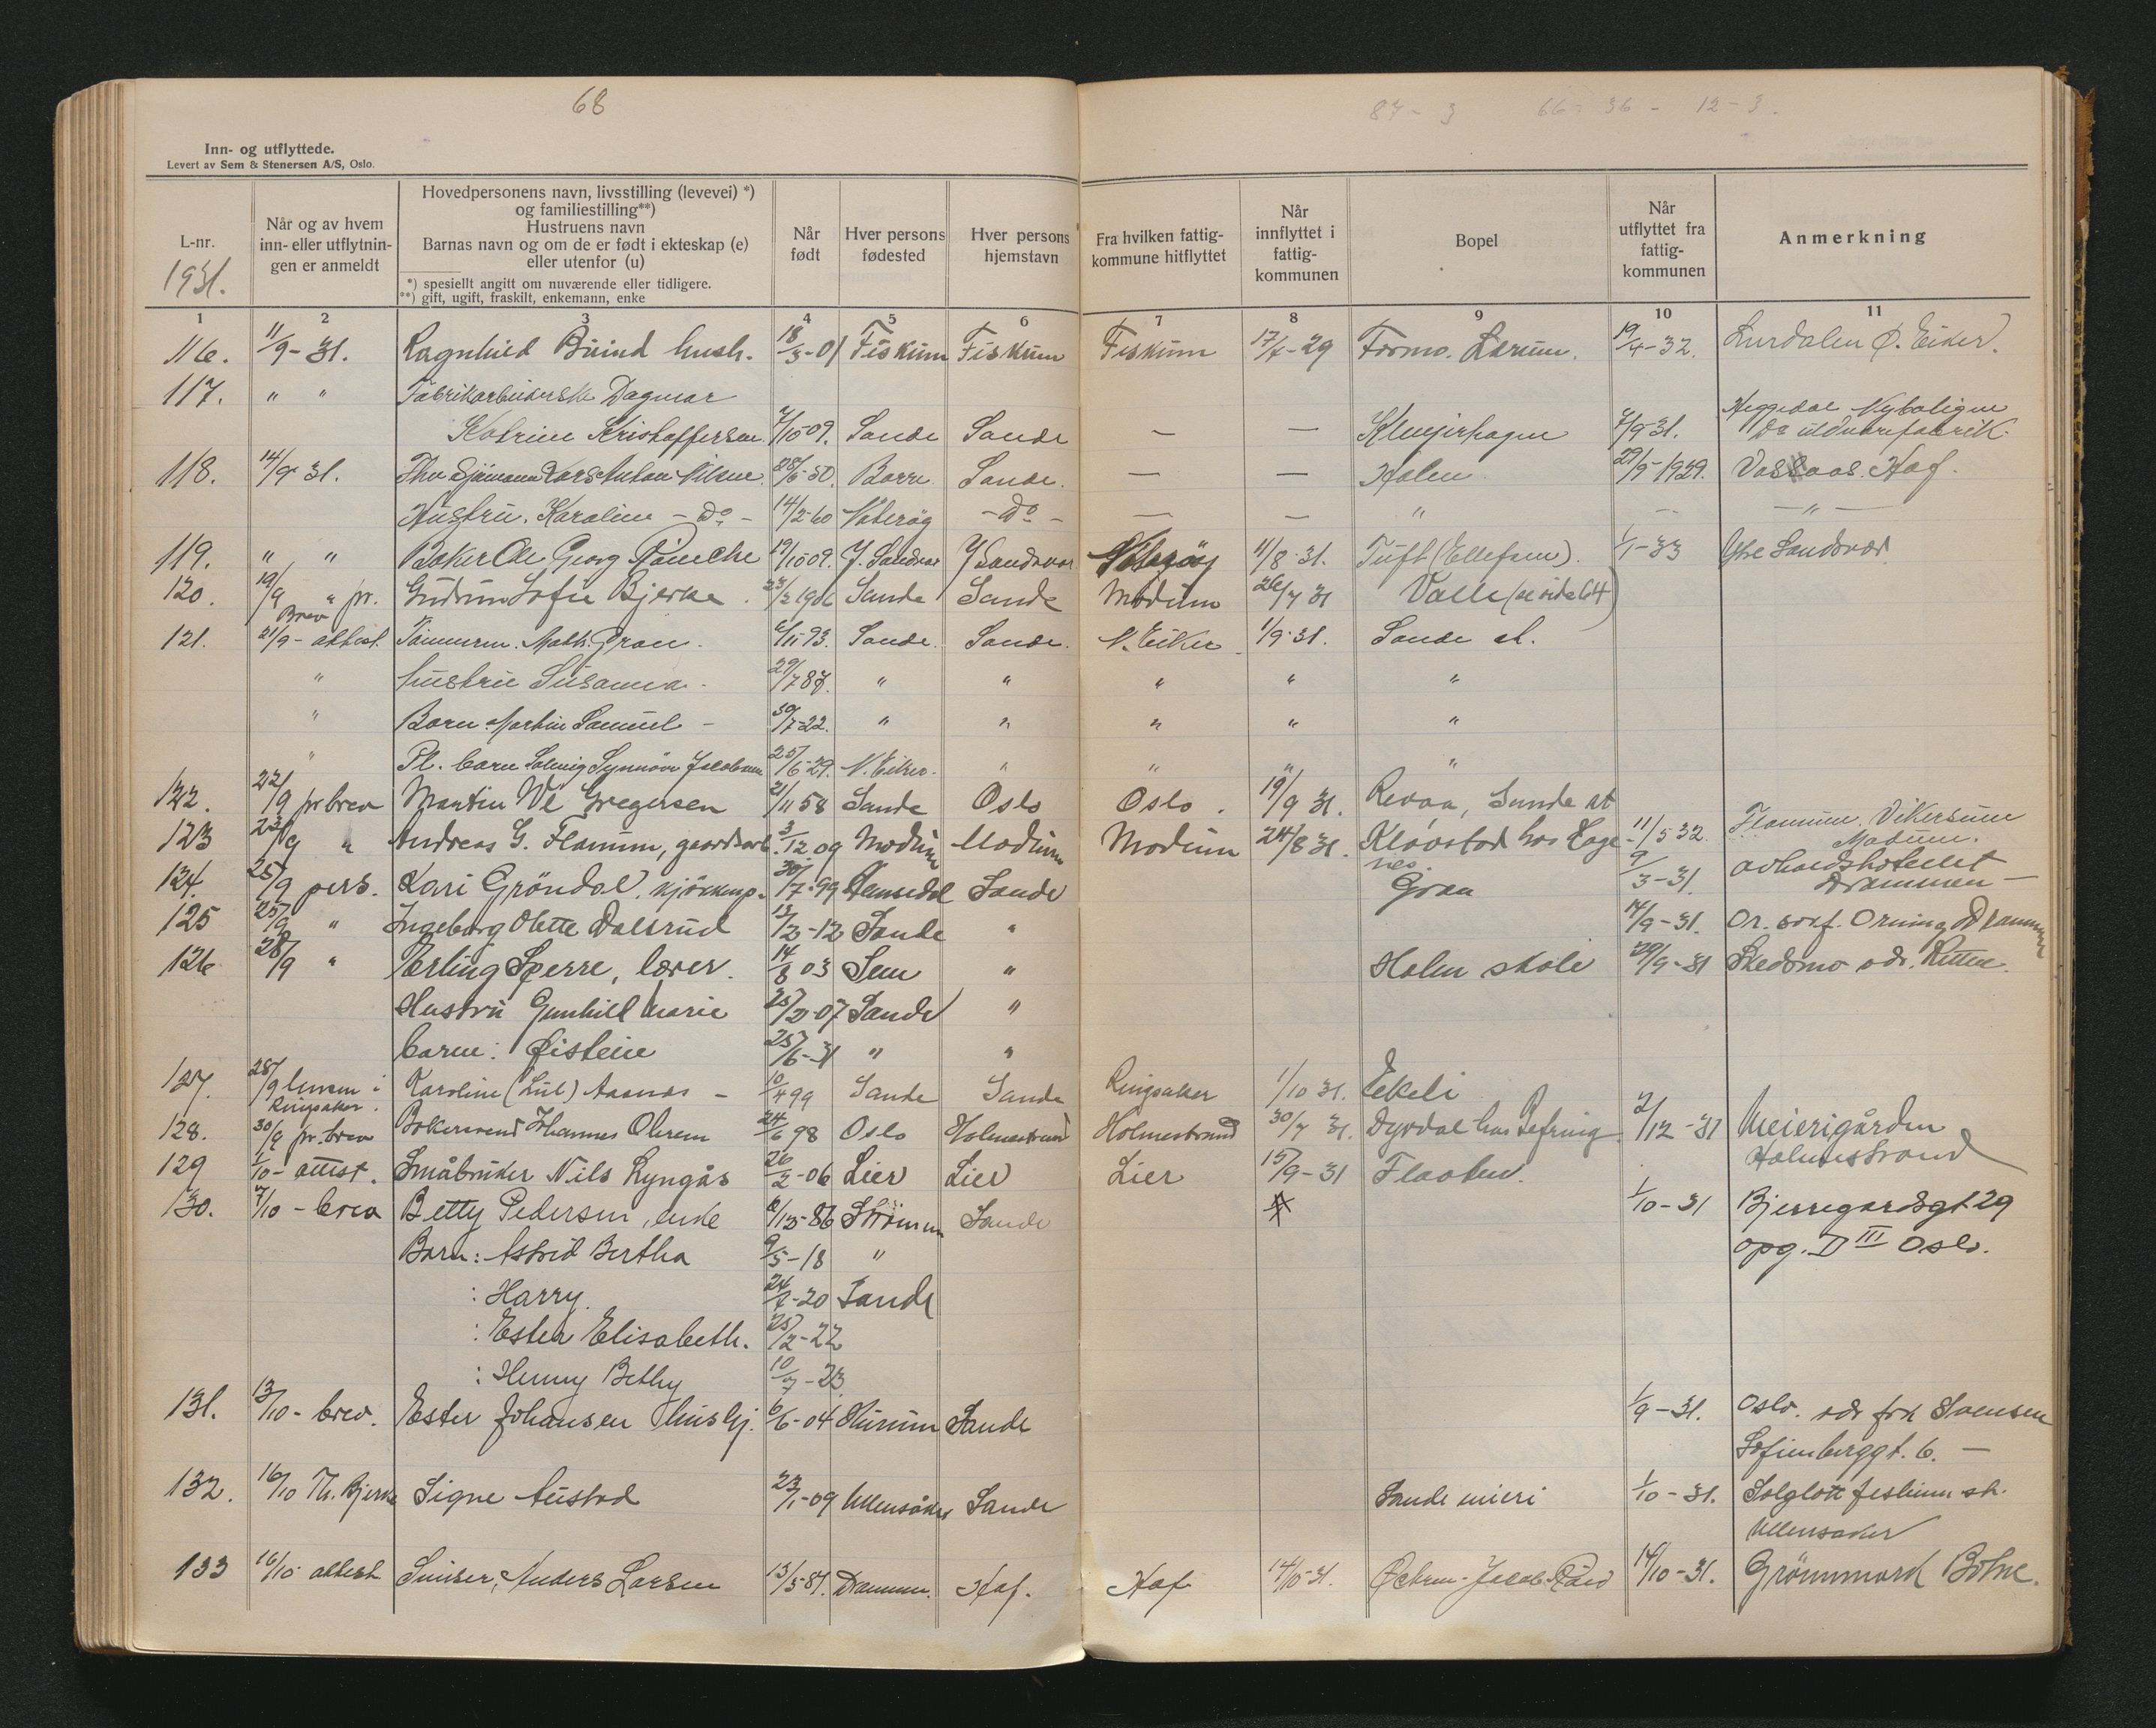 68
87 - 3 66 - 36 - 12 - 3.
Inn- og utflyttede.
Levert av Sem & Stenersen A/S, Oslo.
L-nr.
1931.
Når og av hvem
inn- eller utflytnin-
gen er anmeldt
Hovedpersonens navn, livsstilling (levevei) *)
og familiestilling**)
Hustruens navn
Barnas navn og om de er født i ekteskap (e)
eller utenfor (u)
*) spesiellt angitt om nuværende eller tidligere.
**) gift, ugift, fraskilt, enkemann, enke
Når
født
Hver persons
fødested
Hver persons
hjemstavn
Fra hvilken fattig-
kommune hitflyttet
Når
innflyttet i
fattig-
kommunen
Bopel
Når
utflyttet fra
fattig-
kommunen
Anmerkning
1 2 3 4 5 6 7 8 9 10 11
116. 11/9-31. Ragnhild Buind hush. 18/3-01 Fiskum Fiskum Fiskum 17/7-29 Formo. Lerum. 19/4-32. Lurdalen Ø. Eiker.
117. " " Fabrikarbeiderske Dagmar
Katrine Kristoffersen. 7/10 09. Sande Sande — — Klejverhagen 7/9-31. Heggedal Nyboligen
118. 14/9 31. Fhv Sjømann Lars Anton Nilsen. 28/6-50. Borre Sande. — — Holen 29/9-1929. Vassaas. Hof.
Hustru. Karoline - Do - 14/2-60 Nøterøy - Do - — — " — — " —
119. " " Baker Ole Georg Paulche 19/10 09. Y. Sandsvær Y Sandsvær Nøterøy 11/8-31. Tuft (Ellefsen). 1/1-33 Ytre Sandsvær
120. 19/9 " pr. Brev Gudrun Sofie Bjerke. 23/2 1906 Sande Sande Modum 26/7 31 Valle (se side 64)
121. 21/9 - attest. Tømmerm. Math. Gran. 6/11 93. Sande. Sande. N. Eiker 1/9-31. Sande st.
" hustru Susanna - 29/7 87. " " " " "
" Barn: Martin Samuel - 30/7-22. " " " " "
" Pl. barn Solveig Synnøve Jacobsen 25/6-29. N. Eiker. " " " "
122. 22/9 pr brev Martin Vl Gregersen 21/11 58 Sande Oslo Oslo. 19/9 31. Revaa, Sande st
123 23/9 " Andreas G. Flannum, gaardsarb. 3/12 09 Modum Modum Modum 24/8 31. Kløvstad hos Hage- 11/5 32. Flannum. Vikersund
Modum.
124. 25/9 pers. Kari Gröndal, kjøkkenp. 30/7-99 Hemsedal Sande Gran 9/3-31. arbeidshotellet
Drammen —
125 25/9 " Ingeborg Olette Dalsrud 13/2-12 Sande " 14/9-31. Or. sorf. Orning Drammen
126 28/9 " Erling Sperre, lærer. 14/8 03 Sem " Holm skole 29/9-31 Skedsmo adr. Ritter.
Hustru Gunhild Marie 25/2-07 Sande "
barn: Øistein 25/6-31 " "
127. 28/9 lensm. i Ringsaker. Karoline (Lul) Aasnes - 10/4 99 Sande Sande Ringsaker 1/10 31. Eekeli
128. 30/9 pr. brev Bokersvend Johannes Olsen 24/6 98 Oslo Holmestrand Holmestrand 30/7 31. Dyrdal hos Refring 2/12-31 Meierigården
Holmestrand
129 1/10 - attest. Småbruker Nils Lyngås 26/2-06 Lier Lier Lier 15/9-31 Flaaten.
130. 7/10 - brev Betty Pedersen, enke 6/12-86 Strömm Sande 1/10-31 Bjerregardsgt 29
Barn: Astrid Bertha 9/5-18 " opg. D III Oslo.
: Harry. 24/7-20 Sande
: Ester Elisabeth. 25/2-22
: Henny Bethy 10/7-23.
131. 13/10 - brev. Ester Johansen hushj. 6/6-04 Hurum Sande 1/9-31. Oslo. adr frk Svensen
Sofienberggt. 6. —
132. 16/10 Th. Bjerke Signe Austad 23/1-09 Ullensåker Sande Sande mieri 1/10-31. Solglott Jesheim st.
Ullensaker
133 16/10 attest Snirser, Anders Larsen 13/5 87. Drammen. Hof. Hof 14/10-31. 14/10-31. Grönnmork Botne.